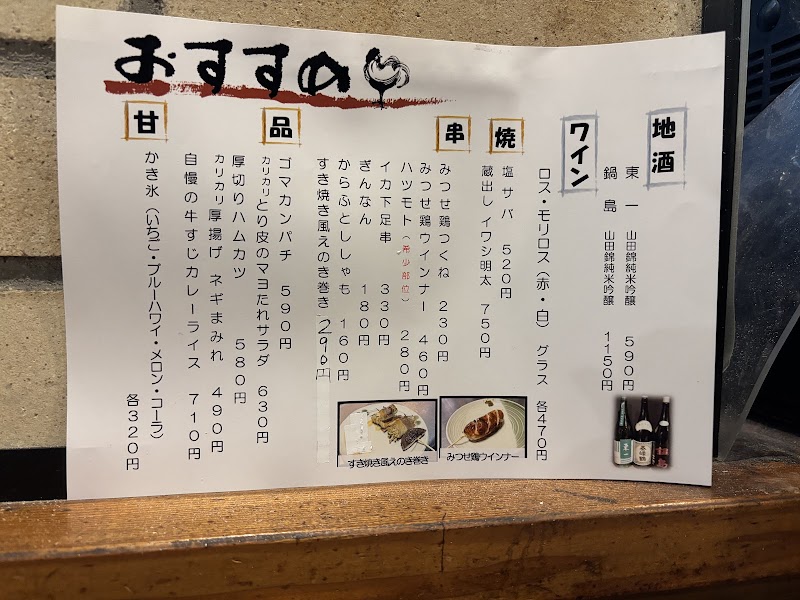 おすすめ
地酒
東一 山田錦純米吟醸 590円
鍋島 山田錦純米吟醸 1150円
ワイン
ロス・モリロス(赤・白) グラス 各470円
焼
塩サバ 520円
蔵出しイワシ明太 750円
串
みつせ鶏つくね 230円
みつせ鶏ウインナー 460円
ハツモト(希少部位) 280円
イカ下足串 330円
ぎんなん 180円
からふとししゃも 160円
すき焼き風えのき巻き 290円
品
ゴマカンパチ 590円
カリカリとり皮のマヨたれサラダ 630円
厚切りハムカツ 580円
カリカリ厚揚げ ネギまみれ 490円
自慢の牛すじカレーライス 710円
甘
かき氷(いちご・ブルーハワイ・メロン・コーラ) 各320円
すき焼き風えのき巻き
みつせ鶏ウインナー